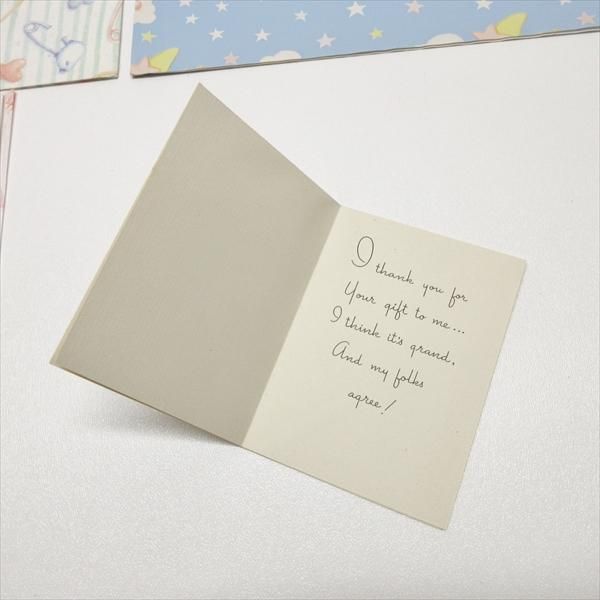 I thank you for
Your gift to me...
I think it's grand,
And my folks
agree!